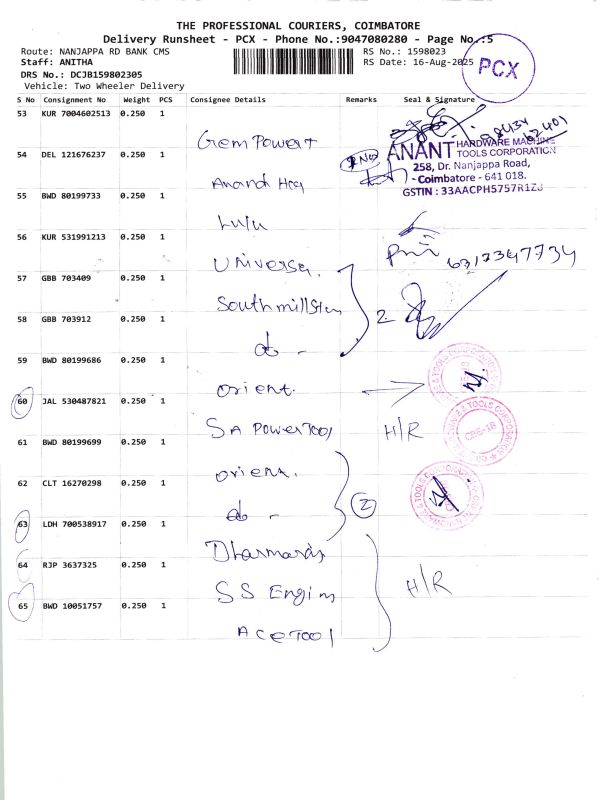 THE PROFESSIONAL COURIERS, COIMBATORE
Delivery Runsheet - PCX - Phone No.:9047080280 - Page No.:5
Route: NANJAPPA RD BANK CMS
RS No.: 1598023
Staff: ANITHA
RS Date: 16-Aug-2025
PCX
DRS No.: DCJB159802305
Vehicle: Two Wheeler Delivery
S No Consignment No Weight PCS Consignee Details Remarks Seal & Signature
53 KUR 7004602513 0.250 1
Gem Power
54 DEL 121676237 0.250 1
ANANT HARDWARE MACHINE
TOOLS CORPORATION
258, Dr. Nanjappa Road,
Coimbatore - 641 018.
GSTIN : 33AACPH5757R1ZJ
Anandh
55 BWD 80199733 0.250 1
Lulu
56 KUR 531991213 0.250 1
Universa.
6317347734
57 GBB 703409 0.250 1
Southmillstn
2
58 GBB 703912 0.250 1
do -
59 BWD 80199686 0.250 1
Orient.
60 JAL 530487821 0.250 1
SA Powertool
H/R
61 BWD 80199699 0.250 1
Orient.
62 CLT 16270298 0.250 1
do -
2
63 LDH 700538917 0.250 1
Dharmards
64 RJP 3637325 0.250 1
SS Engin
H/R
65 BWD 10051757 0.250 1
Acetool